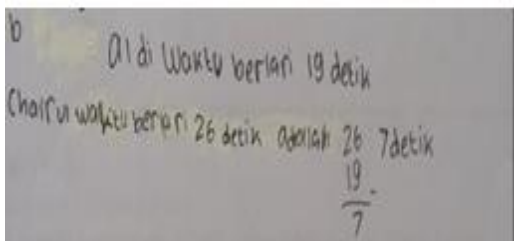 b
aldi waktu berlari 19 detik
Chairul waktu berlari 26 detik adalah 26 7detik
19 -
7